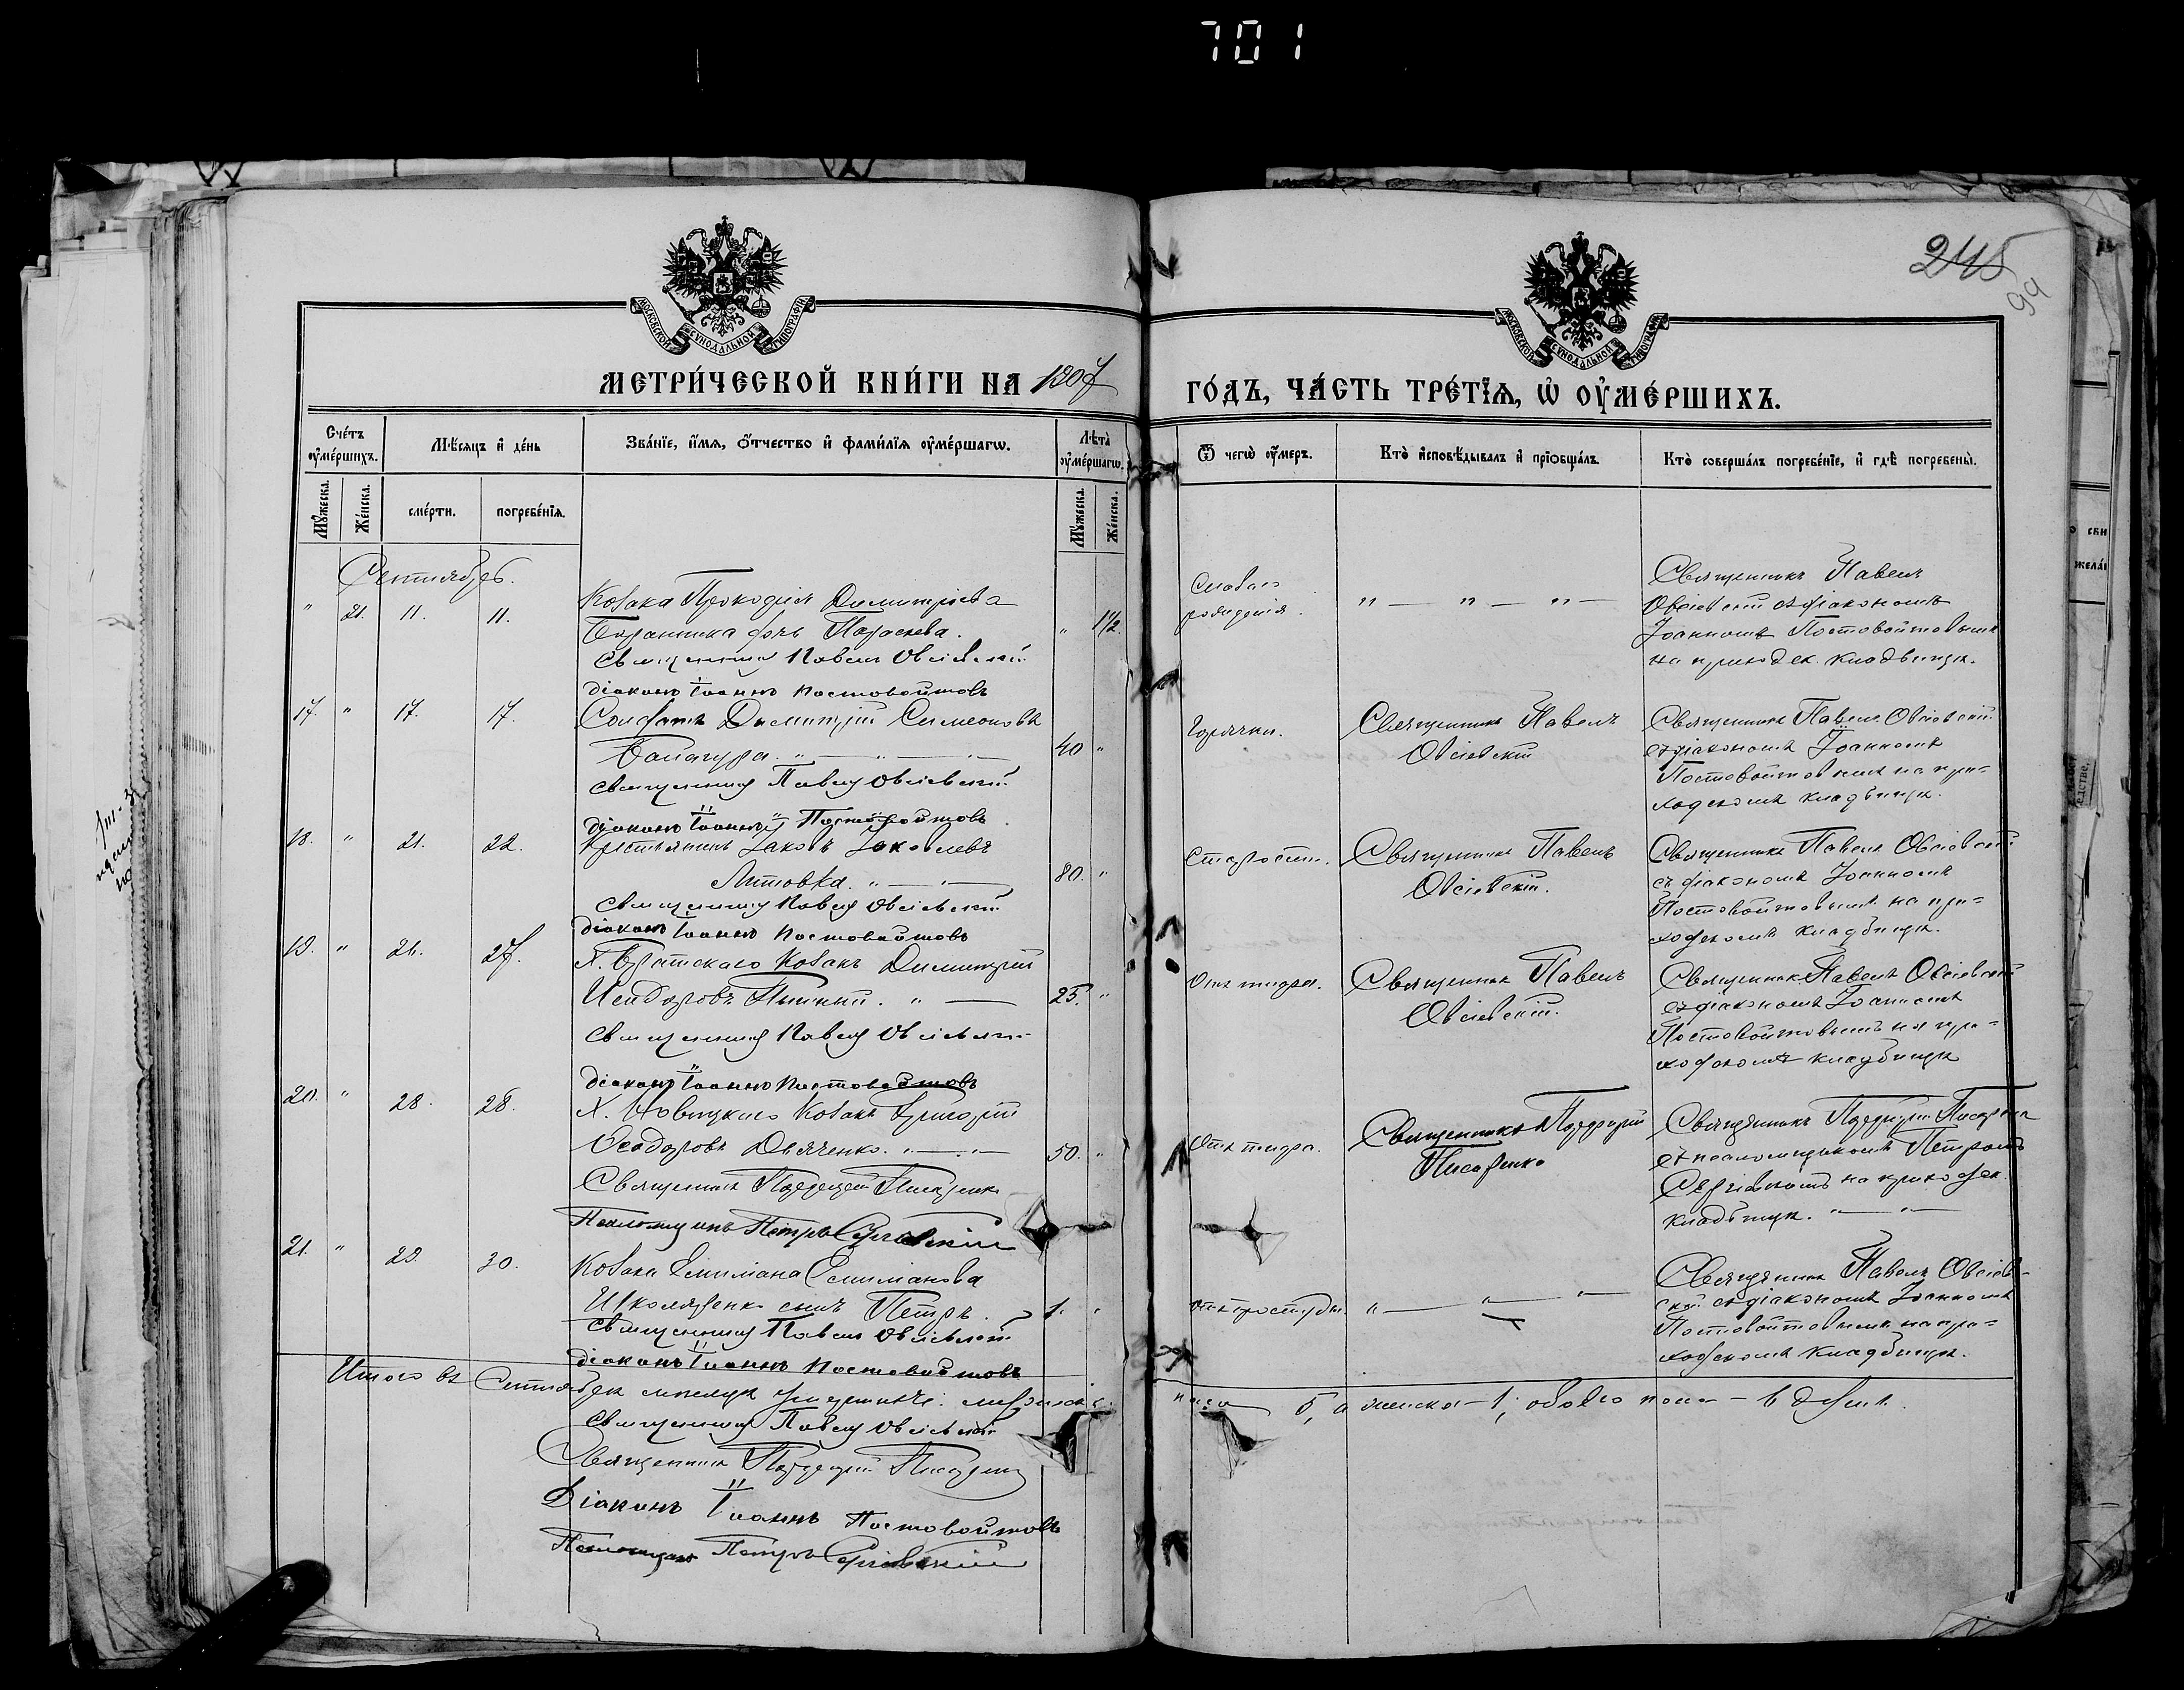 701
245
99
МОСКОВСКОЙ СѴНОДАЛЬНОЙ ТИПОГРАФІИ
МОСКОВСКОЙ СѴНОДАЛЬНОЙ ТИПОГРАФІИ
МЕТРИ́ЧЕСКОЙ КНИ́ГИ НА 1907 ГО́ДЪ, ЧА́СТЬ ТРЕ́ТЇѦ, Ѡ҆ ОУ҆МЕ́РШИХЪ.
Сче́тъ оу҆ме́ршихъ.
Мѣ́сѧцъ и҆ де́нь
Зва́нїе, и҆́мѧ, ѻ҆́тчество и҆ фами́лїѧ оу҆ме́ршагѡ.
Лѣ́та оу҆ме́ршагѡ.
Ѿ чегѡ̀ оу҆́меръ.
Кто̀ и҆сповѣ́дывалъ и҆ прїѡбща́лъ.
Кто̀ соверша́лъ погребе́нїе, и҆ гдѣ̀ погребены̀.
Мꙋ́жеска.
Же́нска.
сме́рти.
погребе́нїѧ.
Мꙋ́жеска.
Же́нска.
Сентябрь.
" 21. 11. 11.
Козака Прокофія Димитріева
дочь Параскева. " 1/2
Священникъ Павелъ Овсіевскій
діаконъ Іоаннъ Постовойтовъ
рожденія.
" — " — " —
Священникъ Павелъ
Овсіевскій съ діакономъ
Іоанномъ Постовойтовымъ
на приходск. кладбищѣ.
17. " 17. 17.
Солдатъ Димитрій Симеоновъ
40 "
Священникъ Павелъ Овсіевскій
діаконъ Іоаннъ Постовойтовъ
Горячки.
Священникъ Павелъ
Овсіевскій
Священникъ Павелъ Овсіевскій
съ діакономъ Іоанномъ
Постовойтовымъ на при=
ходскомъ кладбищѣ.
18. " 21. 22.
Крестьянинъ Іаковъ Іаковлевъ
Литовка. " — " — 80. "
Священникъ Павелъ Овсіевскій
діаконъ Іоаннъ Постовойтовъ
Старости.
Священникъ Павелъ
Овсіевскій.
Священникъ Павелъ Овсіевскій
съ діакономъ Іоанномъ
Постовойтовымъ на при=
ходскомъ кладбищѣ.
19. " 26. 27.
Х. Братскаго Козакъ Димитрій
Исидоровъ " — 25. "
Священникъ Павелъ Овсіевскій
діаконъ Іоаннъ Постовойтовъ
Отъ тифа.
Священникъ Павелъ
Овсіевскій.
Священникъ Павелъ Овсіевскій
съ діакономъ Іоанномъ
Постовойтовымъ на при=
ходскомъ кладбищѣ
20. " 28. 28.
Х. Новицкаго Козакъ Григорій
Ѳеодоровъ Дьяченко. " — " — 50. "
Священникъ Писаренко
Псаломщикъ Петръ Сергіевскій
Отъ тифа.
Священникъ
Писаренко
Священникъ Писаренко
съ псаломщикомъ Петромъ
на приходск.
кладбищѣ. " — " —
21. " 29. 30.
Козака Емиліана Емиліанова
Школяренка сынъ Петръ. 1. "
Священникъ Павелъ Овсіевскій
діаконъ Іоаннъ Постовойтовъ
Отъ простуды.
" — " — " —
Священникъ Павелъ Овсіев-
скій съ діакономъ Іоанномъ
Постовойтовымъ на при=
ходскомъ кладбищѣ.
Итого въ Сентябрѣ мѣсяцѣ умершихъ: мужеска пола 5, а женска — 1; обоего пола — 6 душъ.
Священникъ Павелъ Овсіевскій
Священникъ Писаренко
Діаконъ Іоаннъ Постовойтовъ
Псаломщикъ Петръ Сергіевскій